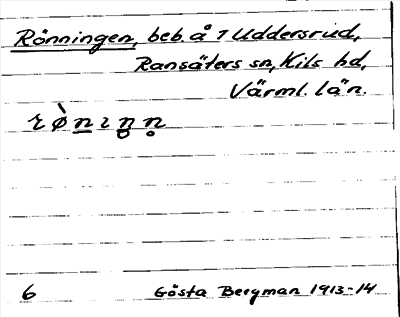 Rönningen, beb. å 1 Uddersrud,
Ransäters sn, Kils hd,
Värml. län.
rø̀n̲ɪn̥n̥
6 Gösta Bergman 1913-14